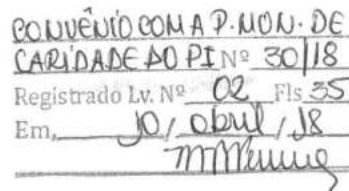 CONVÊNIO COM A P. MON. DE
CARIDADE DO PI Nº 30/18
Registrado Lv. Nº 02 Fls 35
Em, 10/ abril / 18